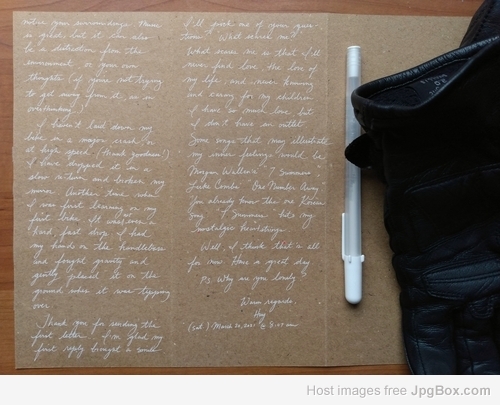 notice your surroundings. Music
is good, but it can also
be a distraction from the
environment, or your own
thoughts (if you're not trying
to get away from it, as in
overthinking.)
I haven't laid down my
bike in a major crash or
at high speed (thank goodness!)
I have dropped it in a
slow return and broken my
mirror. Another time when
I was first learning on my
first bike. It was over a
hard fast drop. I had
my hands on the handlebars
and fought gravity and
gently placed it on the
ground when it was tipping
over.
Thank you for sending the
first letter. I'm glad my
first reply brought a smile
I'll pick one of your ques-
tions. What scares me?
What scares me is that I'll
never find love, the love of
my life, and never knowing
and caring for my children.
I have so much love but
I don't have an outlet.
Some songs that may illustrate
my inner feelings would be
Morgan Wallen's "7 Summers"
Luke Combs' "One Number Away"
You already knew the one Korean
song. "7 Summers" hits my
nostalgic heartstrings.
Well, I think that's all
for now. Have a great day.
P.S. Why are you lonely?
Warm regards,
(Sat.) March 20, 2021 @ 8:57 am
Host images free JpgBox.com